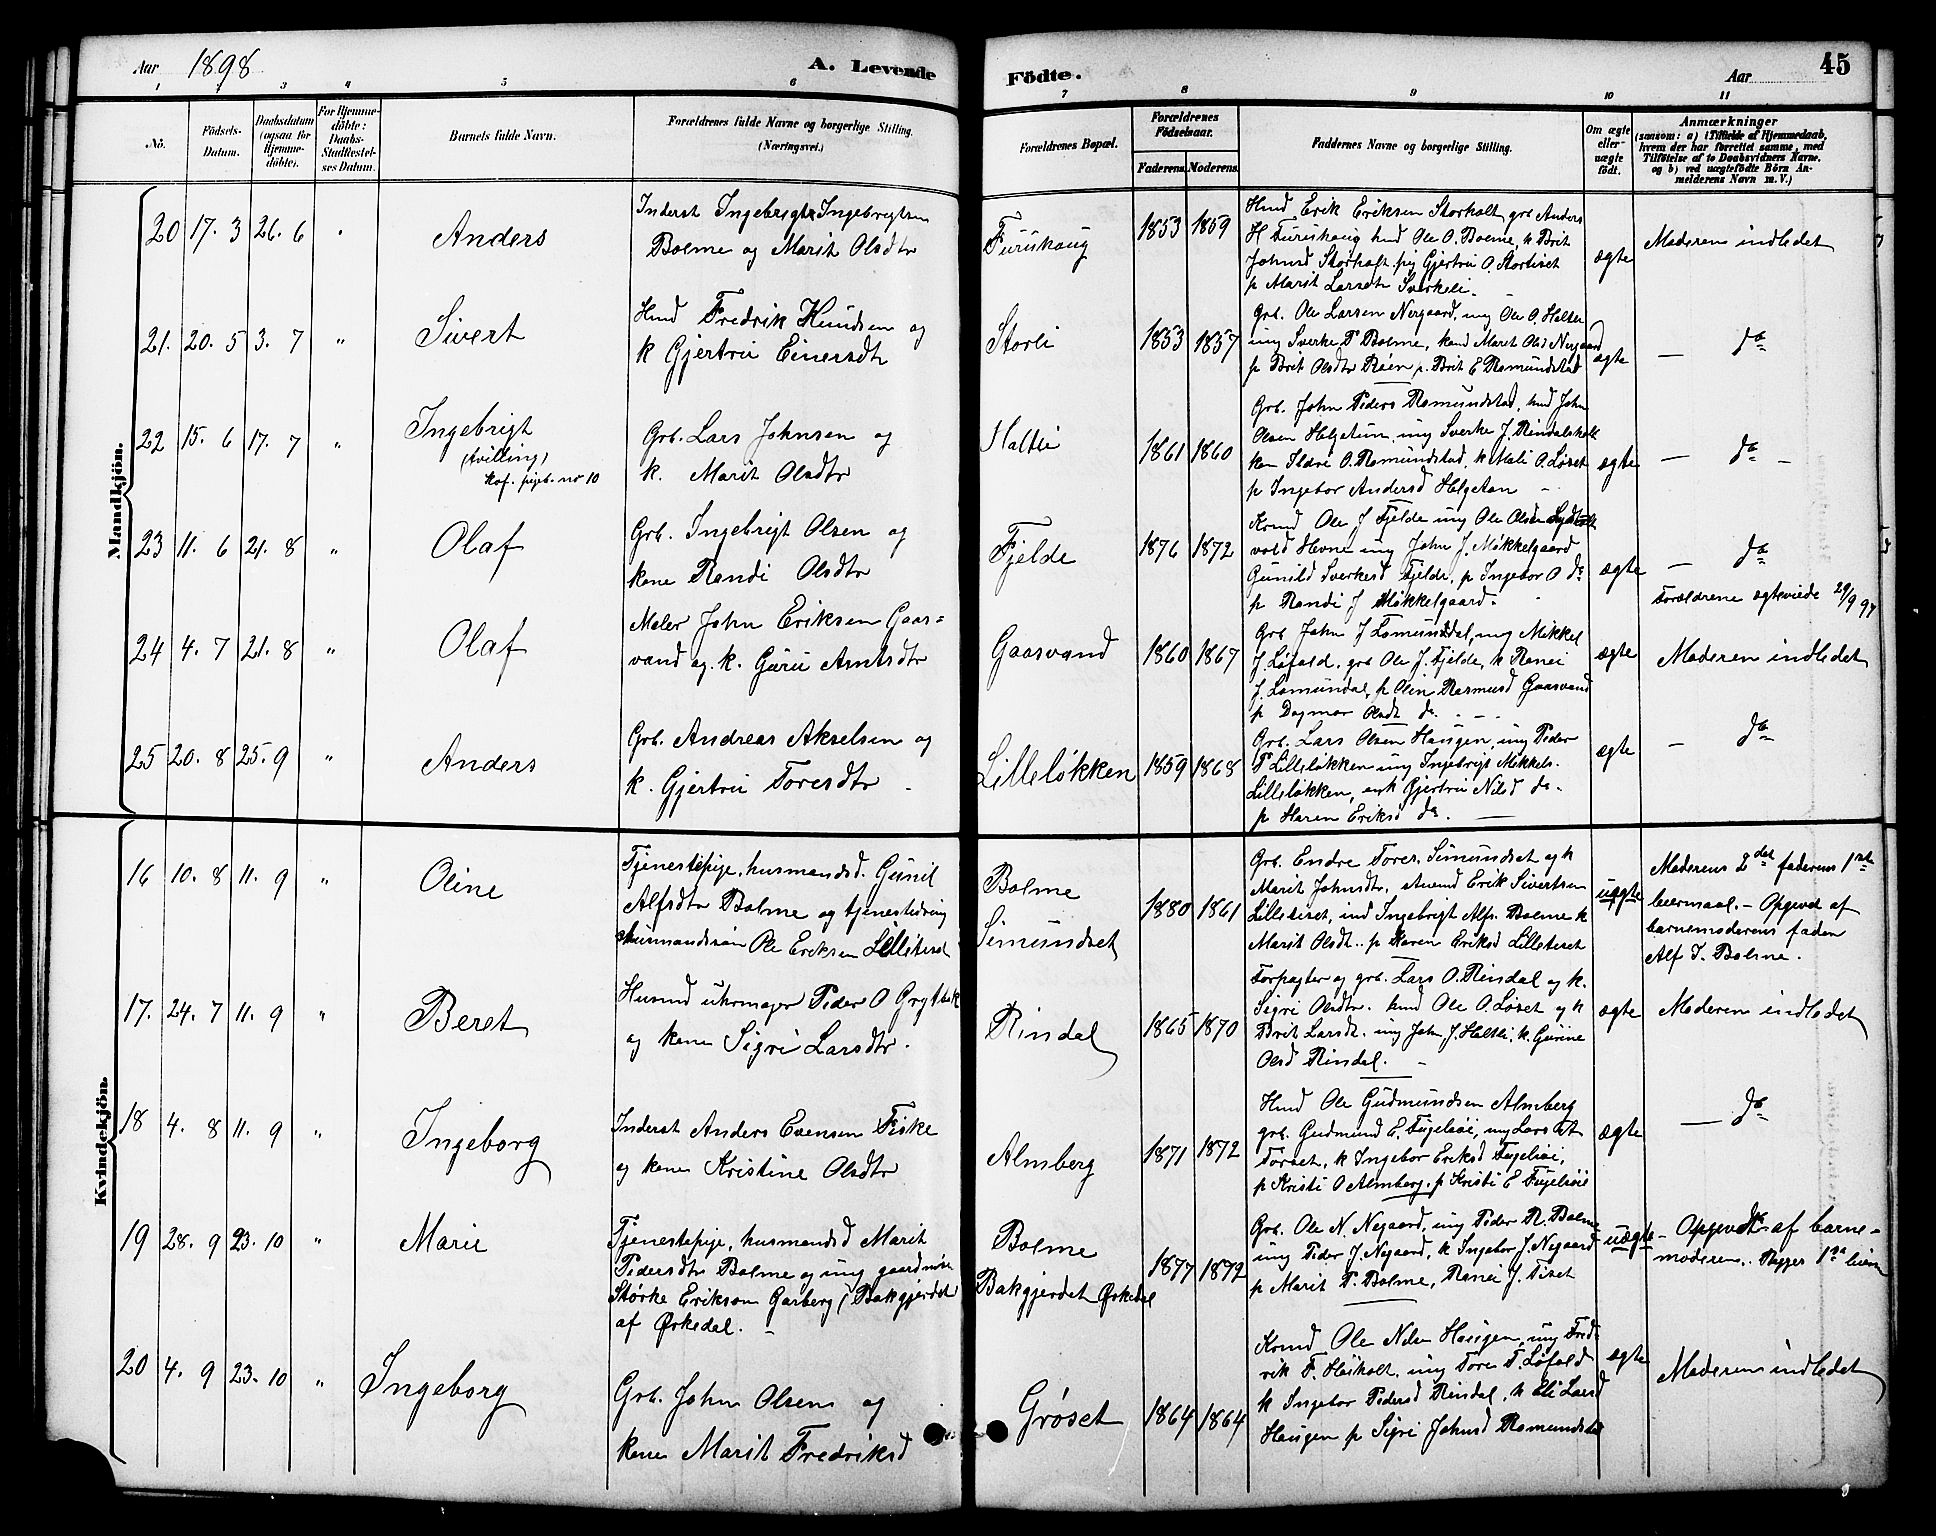 Aar 1898
A. Levende
Födte.
Aar
45
1 2 3 4 5 6
7 8 9 10 11
No.
Födsels-Datum.
Daabsdatum (ogsaa for Hjemme-döbte).
For Hjemme-döbte: Daabs-Stadfæstel-ses Datum.
Barnets fulde Navn.
Forældrenes fulde Navne og borgerlige Stilling.
(Næringsvei.)
Forældrenes Bopæl.
Forældrenes Födselsaar.
Faderens. Moderens.
Faddernes Navne og borgerlige Stilling.
Om ægte eller uægte født.
Anmærkninger
(saasom: a) i Tilfælde af Hjemmedaab,
hvem der har forrettet samme, med
Tilföielse af to Daabsvidners Navne.
og b) ved uægtefödte Börn An-
melderens Navn m. V.)
Mandkjön.
20 17. 3 26. 6 Anders
Inderst Ingebrigt Ingebrigtsen
Bolme og Marit Olsdtr
Furuhaug
1853 1859
Hmd Erik Eriksen Storholt, grb Anders
H Furuhaug hmd Ole O. Bolme, k Brit
Johnsd Storholt pig Gjertru O. Stortiset
p Marit Larsdtr Sverkeli.
ægte
Moderen indledet
21. 20. 5 3. 7 " Sivert
Hmd Fredrik Knudsen og
k Gjertru Einersdtr
Storli
1853 1857
Grb. Ole Larsen Nergaard, ung Ole O. Haltli
ung Sverke P Bolme, kond Maret Olsd Nergaard
p Brit Olsdtr Røen p. Brit E Romundstad
ægte
— do
22 15. 6 17. 7 " Ingebrigt
(tvilling)
kof. pigeb. no 10
Grb. Lars Johnsen og
k. Marit Olsdtr
Haltli
1861 1860
Grb. John Peders Romundstad, hmd John
Olsen Helgetun, ung Sverke J. Rindalsholt
kon Ildri O. Romundstad, k Mali O. Løset
p Ingebor Andersd Helgetun
ægte
— do —
23 11. 6 21. 8 " Olaf
Grb. Ingebrigt Olsen og
kone Randi Olsdtr
Fjelde
1876 1872
Kmd Ole J Fjelde ung Ole Olsen
vold Hevne ung John J. Møkkelgaard
Gunild Sverkesd Fjelde, p Ingebor O do
p Randi J Møkkelgaard.
ægte
— do
Forældrene ægteviede 29/9 97
24 4. 7 21. 8 " Olaf
Maler John Eriksen Gaas=
vand og. k. Guru Arntsdtr
Gaasvand
1860 1867
Grb John J Lomundal, ung Mikkel
J Løfald, grb Ole J. Fjelde, k Ranei
J. Lomundal, p Olin Rasmusd Gaasvand
p Dagmar Olsdt do.
ægte
Moderen indledet
25 20. 8 25. 9 " Anders
Grb. Andreas Akselsen og
k. Gjertru Toresdtr
Lilleløkken
1859 1868
Grb. Lars Olsen Haugen, ung Peder
P Lilleløkken ung Ingebrigt Mikkels.
Lilleløkken, enk Gjertru Nilsd do.
p Haren Eriksd do.
ægte
— do
Kvindekjön.
16 10. 8 11. 9 " Oline
Tjenestepige, husmandsd. Gunil
Alfsdtr Bolme og tjenestedreng
husmandssøn Ole Eriksen Lilletiset
Bolme
Simundset
1880 1861
Grb. Endre Tores. Simundset og k
Marit Johnsdtr, Erik Sivertsen
Lilletiset, ind Ingebrigt Alfs. Bolme k
Marit Olsdt. p Karen Eriksd Lilletiset
uægte
Moderens 2det faderens 1ste
leiermaal. — Opgivet af
barnemoderens fader
Alf I. Bolme.
17. 24. 7 11. 9 " Beret
Husmd uhrmager Peder O Grytbak
og kone Sigri Larsdtr.
Rindal
1865 1870
Forpagter og grb. Lars O. Rindal og k.
Sigri Olsdtr. hmd Ole O. Løset og k
Brit Larsdt. ung John J. Haltli, k. Gurine
Olsd Rindal.
ægte
Moderen indledet
18 4. 8 11. 9 " Ingeborg
Inderst Anders Evensen Fiske
og kone Kristine Olsdtr
Almberg
1871 1872
Hmd Ole Gudmundsen Almberg
grb. Gudmund E. Fugelsøi, ung Lars
Torset, k Ingebor Eriksd Fugelsøi,
p Kristi O Almberg. p Kristi E Fugelsøie
ægte
— do
19 28. 9 23. 10 " Marie
Tjenestepige, husmandsd Marit
Pedersdtr Bolme og ung gaardmd
Størke Erikson Garberg (Bakgjerdet
af Ørkedal.
Bolme
Bakgjerdet Ørkedal
1877 1872
Grb. Ole N. Negaard, ung Peder R. Bolme
ung Peder J. Negaard, k Ingebor J. Negaard
p Marit P. Bolme, Ranei J. Tiset
uægte
— Opgivet af barne=
moderen. Begges 1ste leierm
20 4. 9 23. 10 " Ingeborg
Grb. John Olsen og
kone Marit Fredriksd
Grøset
1864 1864
Kmd Ole Nilsen Haugen, ung Fred
rik F. Heikolt, ung Tore T. Løfald
k Ingebor Pedersd Rindal, k Eli Larsd
Haugen p Sigri Johnsd Romundstad
ægte
Moderen indledet